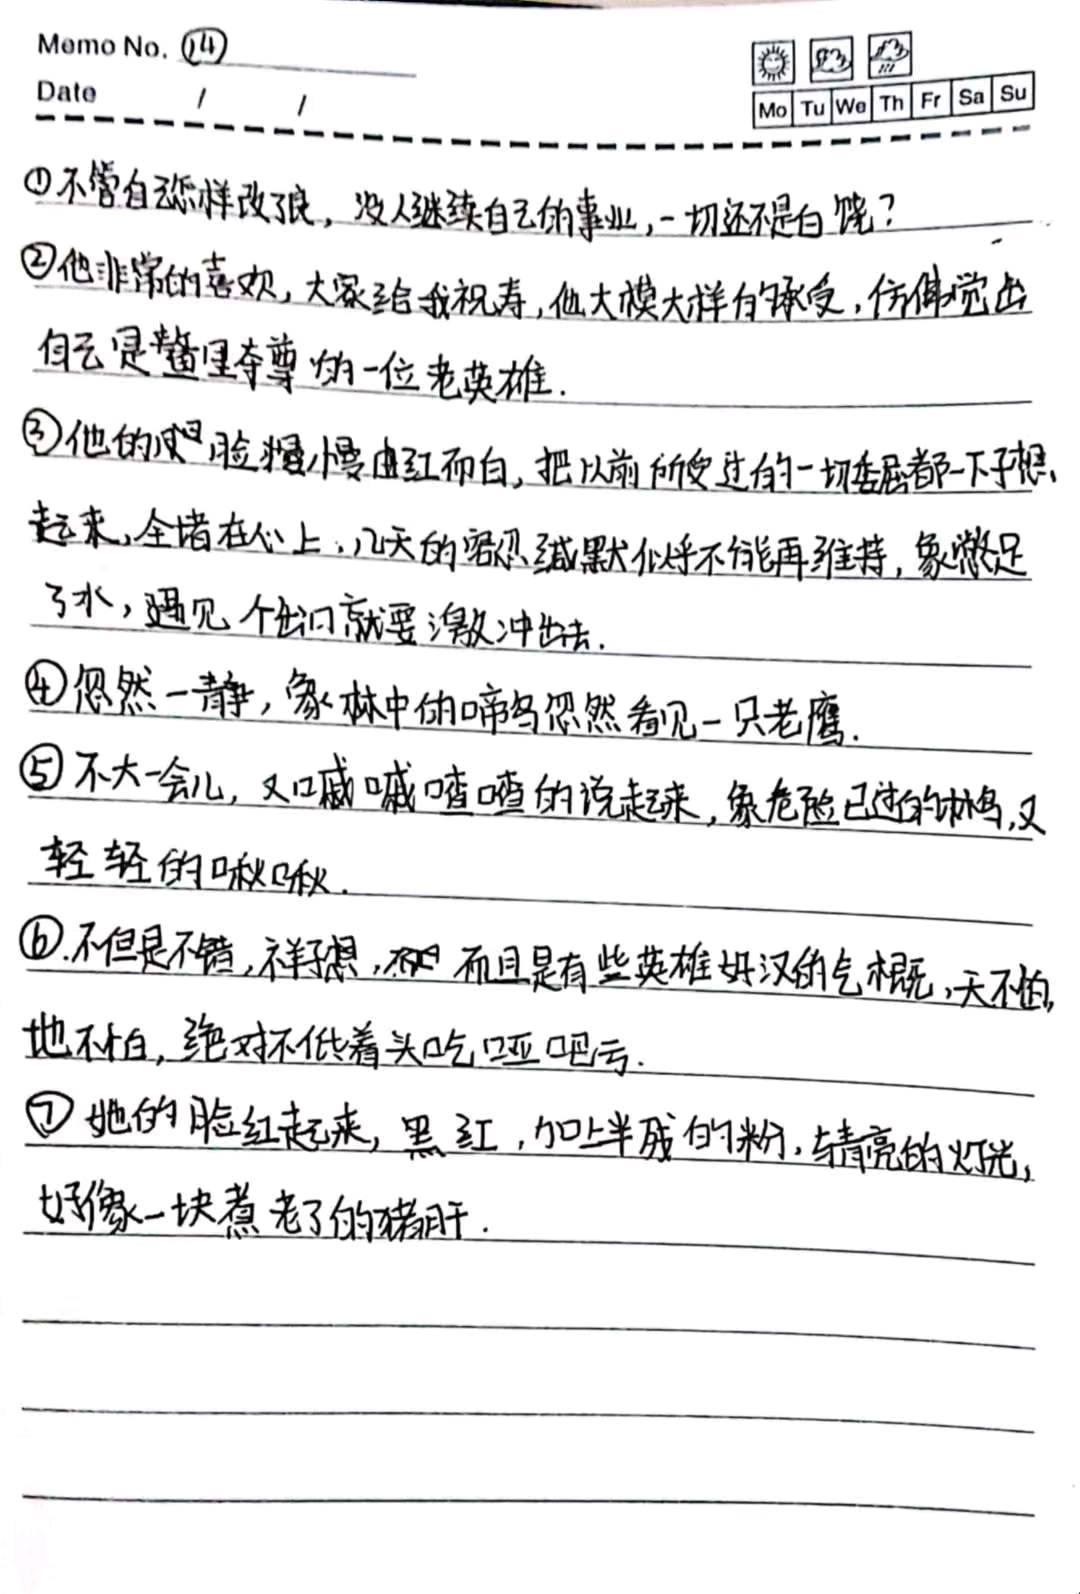 Memo No. ⑭
Date / /
Mo Tu We Th Fr Sa Su
①不管自己怎样改了良，没人继续自己的事业，一切还不是白饶？
②他非常的喜欢，大家给我祝寿，他大模大样的承受，仿佛觉出
自己是鳌里夺尊的一位老英雄.
③他的脸慢慢由红而白，把以前所受过的一切委屈都一下子想
起来，全堵在心上.几天的容忍缄默似乎不能再维持，象憋足
了水，遇见个出口就要激冲出去.
④忽然一静，象林中的啼鸟忽然看见一只老鹰.
⑤不大一会儿，又嘁嘁喳喳的说起来，象危险已过的林鸟，又
轻轻的啾啾.
⑥.不但是不错，祥子想，而且是有些英雄好汉的气概，天不怕，
地不怕，绝对不低着头吃哑吧亏.
⑦她的脸红起来，黑红，加上半残的粉，与青亮的灯光，
好像一块煮老了的猪肝.